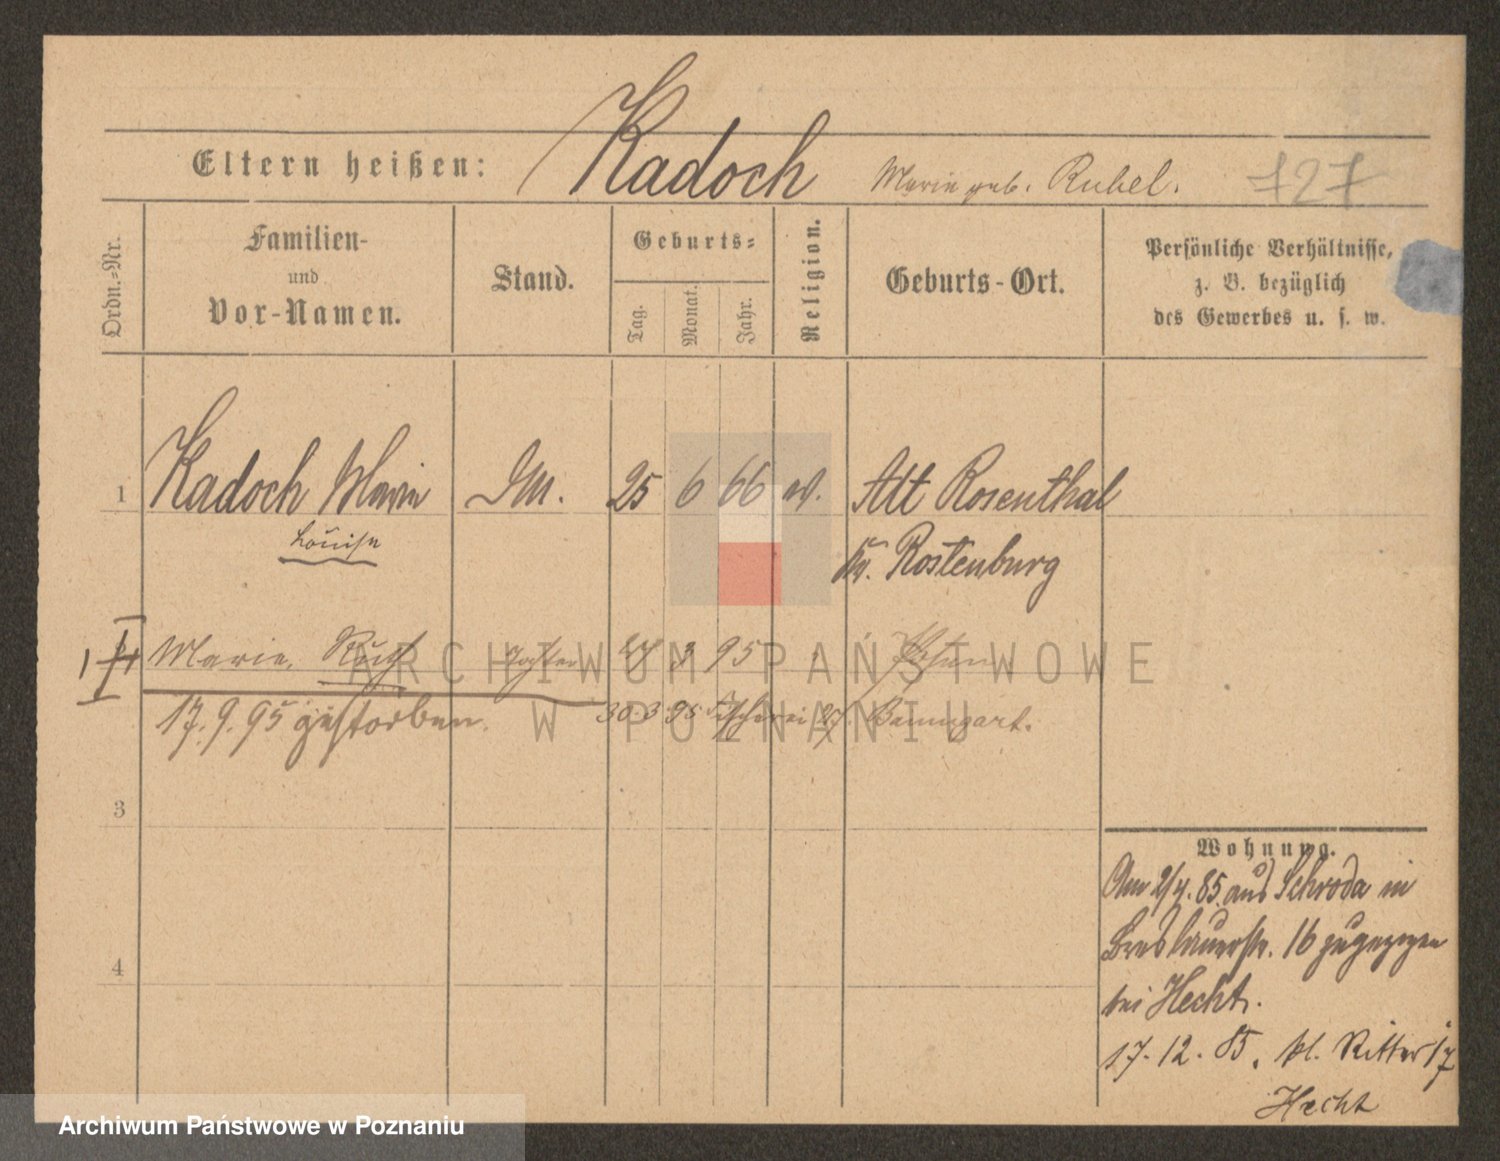 Eltern heißen: Kadoch Marie geb. Rubel. 127
Ordn.-Nr.
Familien-
und
Vor-Namen.
Stand.
Geburts-
Tag. Monat. Jahr.
Religion.
Geburts-Ort.
Persönliche Verhältnisse,
z. B. bezüglich
des Gewerbes u. s. w.
1 Kadoch Marie DM. 25 6 66 ev. Alt Rosenthal
Louise Kr. Rostenburg
Marie, Ruth Tochter 27 3 95 Posen
17.9.95 gestorben. 30.3 95 Fischerei 27. Baumgart.
3
4
Wohnung.
Am 2/4. 85 aus Schroda in
Breslauerstr. 16 zugezogen
bei Hecht.
17. 12. 85. kl. Ritter 17
Hecht
ARCHIWUM PAŃSTWOWE
W POZNANIU
Archiwum Państwowe w Poznaniu